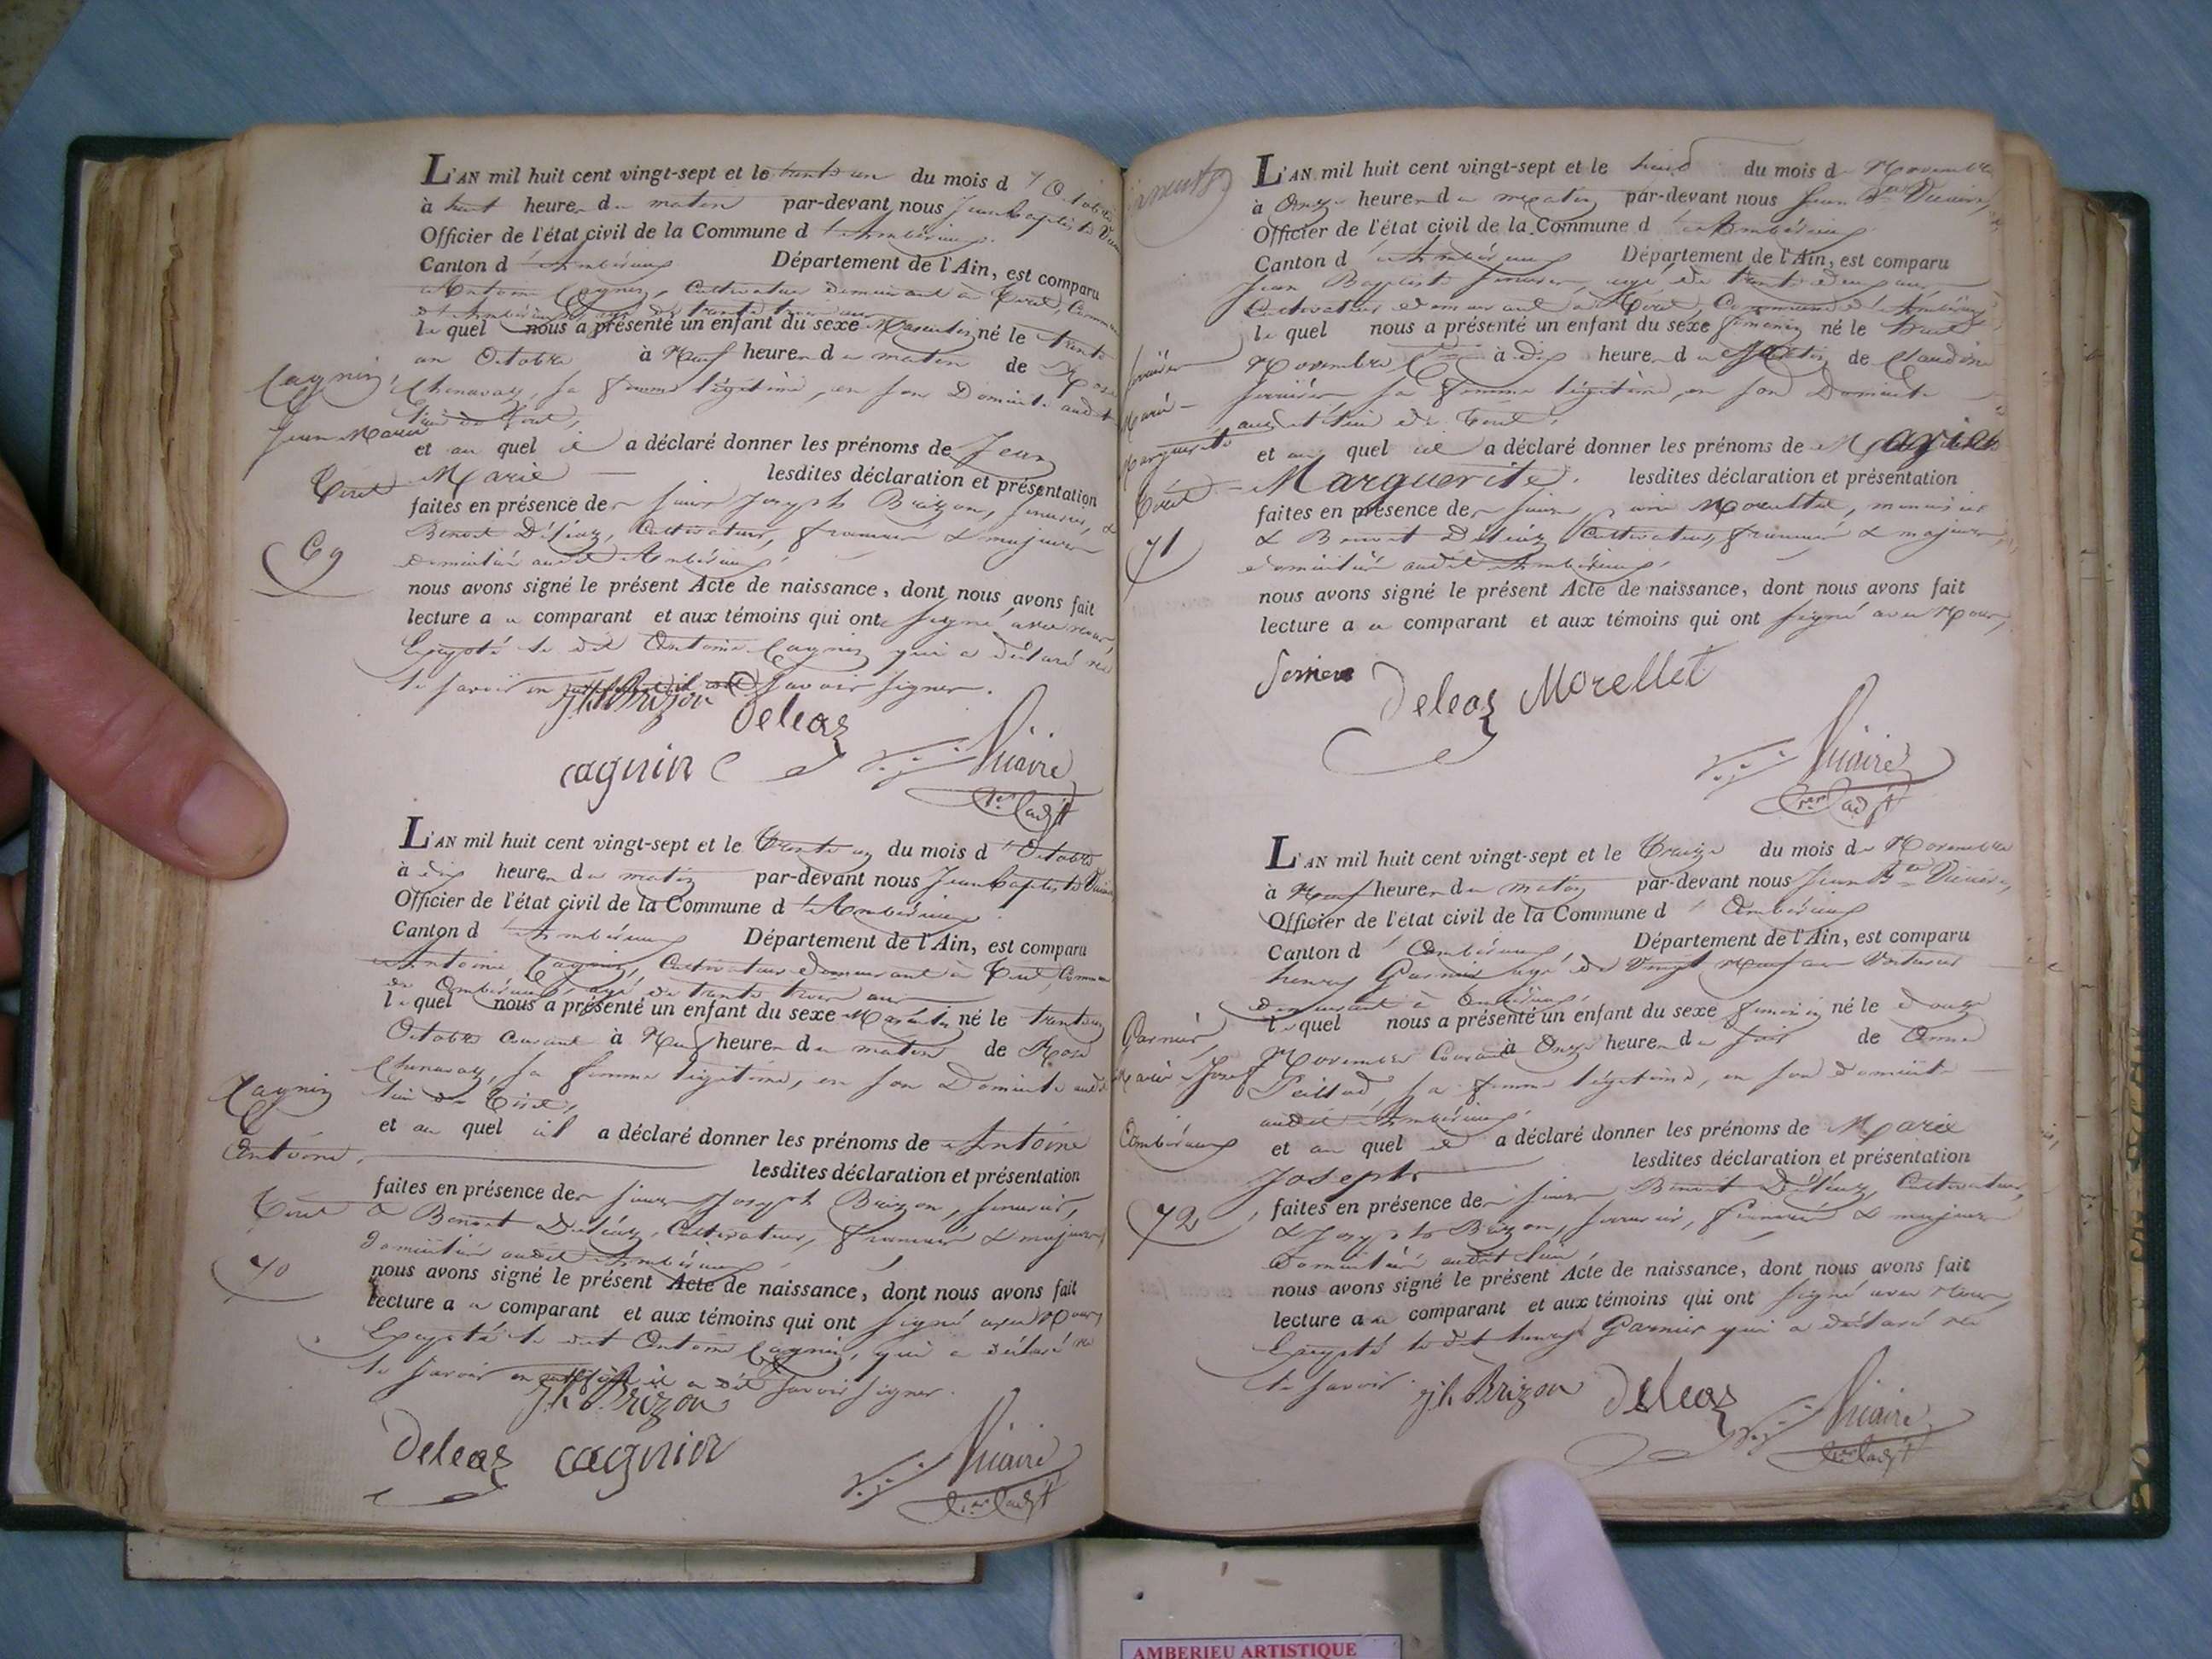 L'AN mil huit cent vingt-sept et le trente un du mois d'Octobre
à huit heure du matin par-devant nous Jean baptiste
Officier de l'état civil de la Commune d'Ambérieux
Canton d'Ambérieux Département de l'Ain, est comparu
Antoine Cagnin, Cultivateur demeurant à Tiret, Commune
d'Ambérieux, agé de trente trois ans
lequel nous a présenté un enfant du sexe Masculin né le trente
un Octobre à Neuf heure du matin de Rose
Cagnin
Chenavaz, sa femme légitime, en son Domicile audit
lieu de Tiret,
Jean Marie
et au quel il a déclaré donner les prénoms de Jean
Tiret
Marie lesdites déclaration et présentation
faites en présence de sieurs Joseph Brizon,
Benoit Déléaz, Cultivateur, français & majeurs
69
domiciliés audit Ambérieux
nous avons signé le présent Acte de naissance, dont nous avons fait
lecture au comparant et aux témoins qui ont signé avec nous,
Excepté le dit Antoine Cagnin qui a déclaré ne
le savoir savoir signer.
Jh Brizon Deleaz
cagnin Vicaire
L'AN mil huit cent vingt-sept et le Trente un du mois d'Octobre
à dix heure du matin par-devant nous Jean baptiste
Officier de l'état civil de la Commune d'Ambérieux
Canton d'Ambérieux Département de l'Ain, est comparu
Antoine Cagnin, Cultivateur demeurant à Tiret, Commune
de Ambérieux, agé de trente trois ans
lequel nous a présenté un enfant du sexe Masculin né le trente un
Octobre Courant à Neuf heure du matin de Rose
Cagnin
Chenavaz, sa femme légitime, en son Domicile audit
lieu de Tiret,
et au quel il a déclaré donner les prénoms de Antoine
Antoine
lesdites déclaration et présentation
faites en présence de sieurs Joseph Brizon,
Tiret
& Benoit Déléaz, Cultivateur, français & majeurs
domiciliés audit Ambérieux
70
nous avons signé le présent Acte de naissance, dont nous avons fait
lecture au comparant et aux témoins qui ont signé avec Nous,
Excepté le dit Antoine Cagnin, qui a déclaré ne
le savoir il a dit savoir signer.
Jh Brizon
Deleaz cagnin Vicaire
L'AN mil huit cent vingt-sept et le huit du mois de Novembre
à Onze heure du matin par-devant nous Jean Bte Vicaire,
Officier de l'état civil de la Commune d'Ambérieux
Canton d'Ambérieux Département de l'Ain, est comparu
Jean Baptiste agé de trente deux ans
Cultivateur demeurant à Tiret, Commune d'Ambérieux
lequel nous a présenté un enfant du sexe féminin né le huit
Novembre à dix heure du Matin de Claudine
sa femme légitime, en son Domicile
Marie
audit lieu de Tiret,
Marguerite
et au quel il a déclaré donner les prénoms de Marie
Tiret
Marguerite. lesdites déclaration et présentation
faites en présence de sieurs
71
& Benoit Déléaz Cultivateur, français & majeurs
domiciliés audit Ambérieux
nous avons signé le présent Acte de naissance, dont nous avons fait
lecture au comparant et aux témoins qui ont signé avec Nous,
Deleaz Morellet
Vicaire
L'AN mil huit cent vingt-sept et le Treize du mois de Novembre
à Neuf heure du matin par-devant nous Jean Bte Vicaire,
Officier de l'état civil de la Commune d'Ambérieux
Canton d'Ambérieux, Département de l'Ain, est comparu
henry Garnier agé de Vingt Neuf ans Voiturier
demeurant à Ambérieux,
lequel nous a présenté un enfant du sexe féminin né le douze
Garnier
Novembre Courant à Onze heure du soir de Anne
Marie Josep
sa femme légitime, en son domicile
audit Ambérieux,
Ambérieux
et au quel il a déclaré donner les prénoms de Marie
Joseph lesdites déclaration et présentation
faites en présence de sieurs Benoit Déléaz, Cultivateur,
72
& Joseph Brizon, français & majeurs
Domiciliés audit lieu
nous avons signé le présent Acte de naissance, dont nous avons fait
lecture au comparant et aux témoins qui ont signé avec nous,
Excepté le dit henry Garnier qui a déclaré ne
le savoir. Jh Brizon Deleaz Vicaire
AMBERIEU ARTISTIQUE